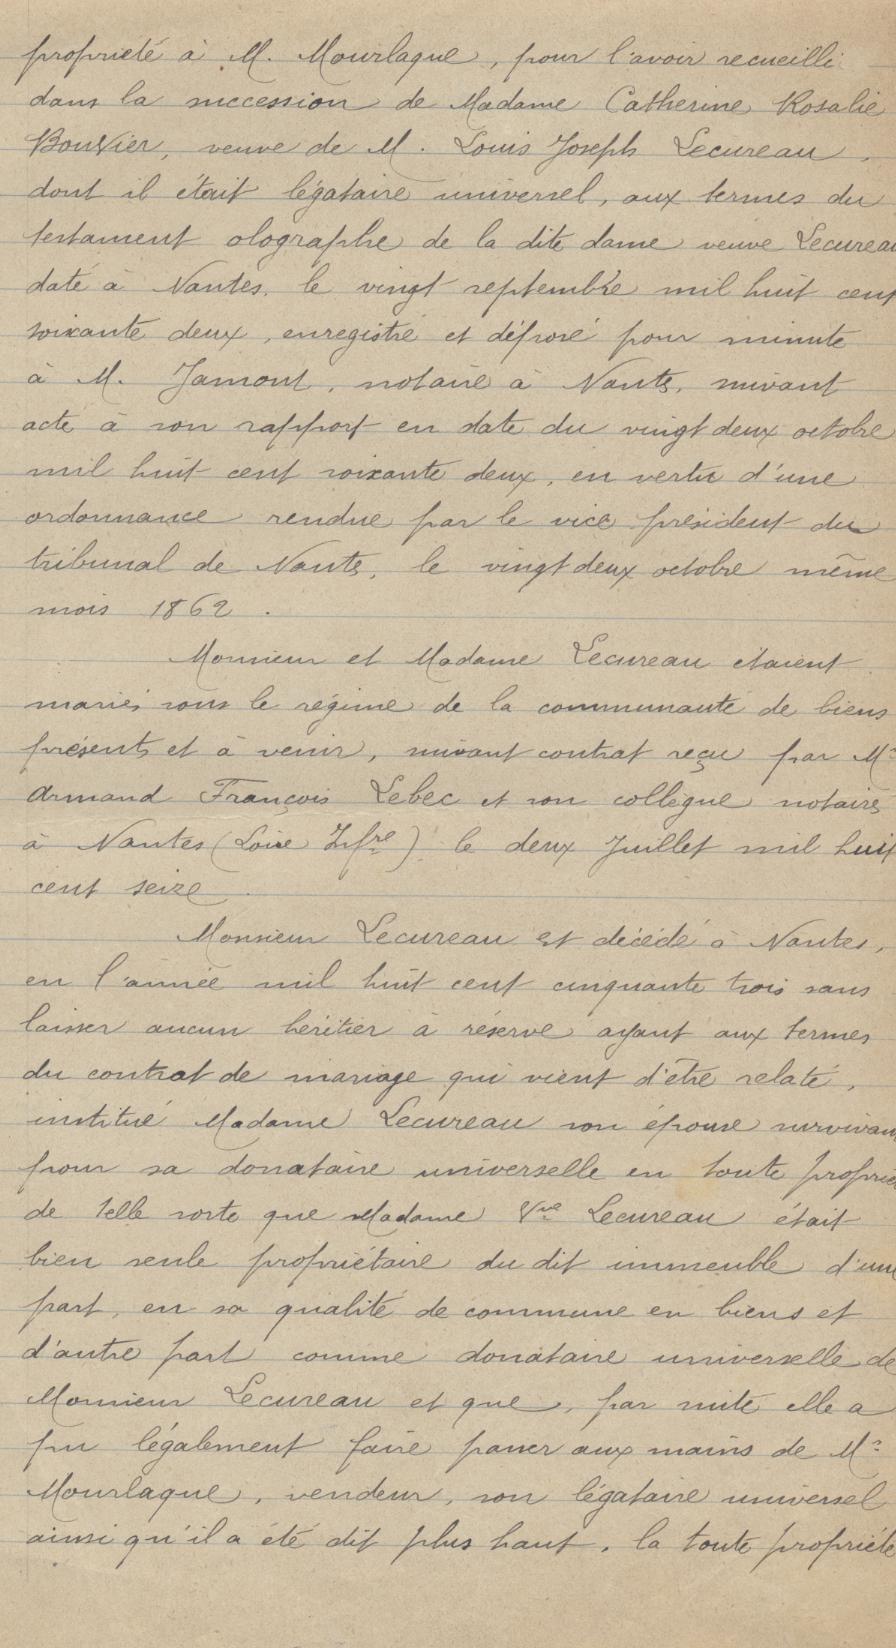 propriété à M. Mourlaque, pour l'avoir recueilli
dans la succession de Madame Catherine Rosalie
Bouvier, veuve de M. Louis Joseph Lecureau,
dont il était légataire universel, aux termes du
testament olographe de la dite dame veuve Lecureau
daté à Nantes, le vingt septembre mil huit cent
soixante deux, enregistré et déposé pour minute
à M. Jamont, notaire à Nantes, suivant
acte à son rapport en date du vingt deux octobre
mil huit cent soixante deux, en vertu d'une
ordonnance rendue par le vice président du
tribunal de Nantes, le vingt deux octobre même
mois 1862.
Monsieur et Madame Lecureau étaient
mariés sous le régime de la communauté de biens
présents et à venir, suivant contrat reçu par Me
Armand François Lebec et son collègue notaires
à Nantes (Loire Infre) le deux Juillet mil huit
cent seize.
Monsieur Lecureau est décédé à Nantes,
en l'année mil huit cent cinquante trois sans
laisser aucun héritier à réserve ayant aux termes
du contrat de mariage qui vient d'être relaté,
institué Madame Lecureau son épouse survivan
pour sa donataire universelle en toute proprié
de telle sorte que Madame Vve Lecureau était
bien seule propriétaire du dit immeuble d'une
part, en sa qualité de commune en biens et
d'autre part comme donataire universelle de
Monsieur Lecureau et que, par suite elle a
pu légalement faire passer aux mains de Mr
Mourlaque, vendeur, son légataire universel
ainsi qu'il a été dit plus haut, la toute propriété